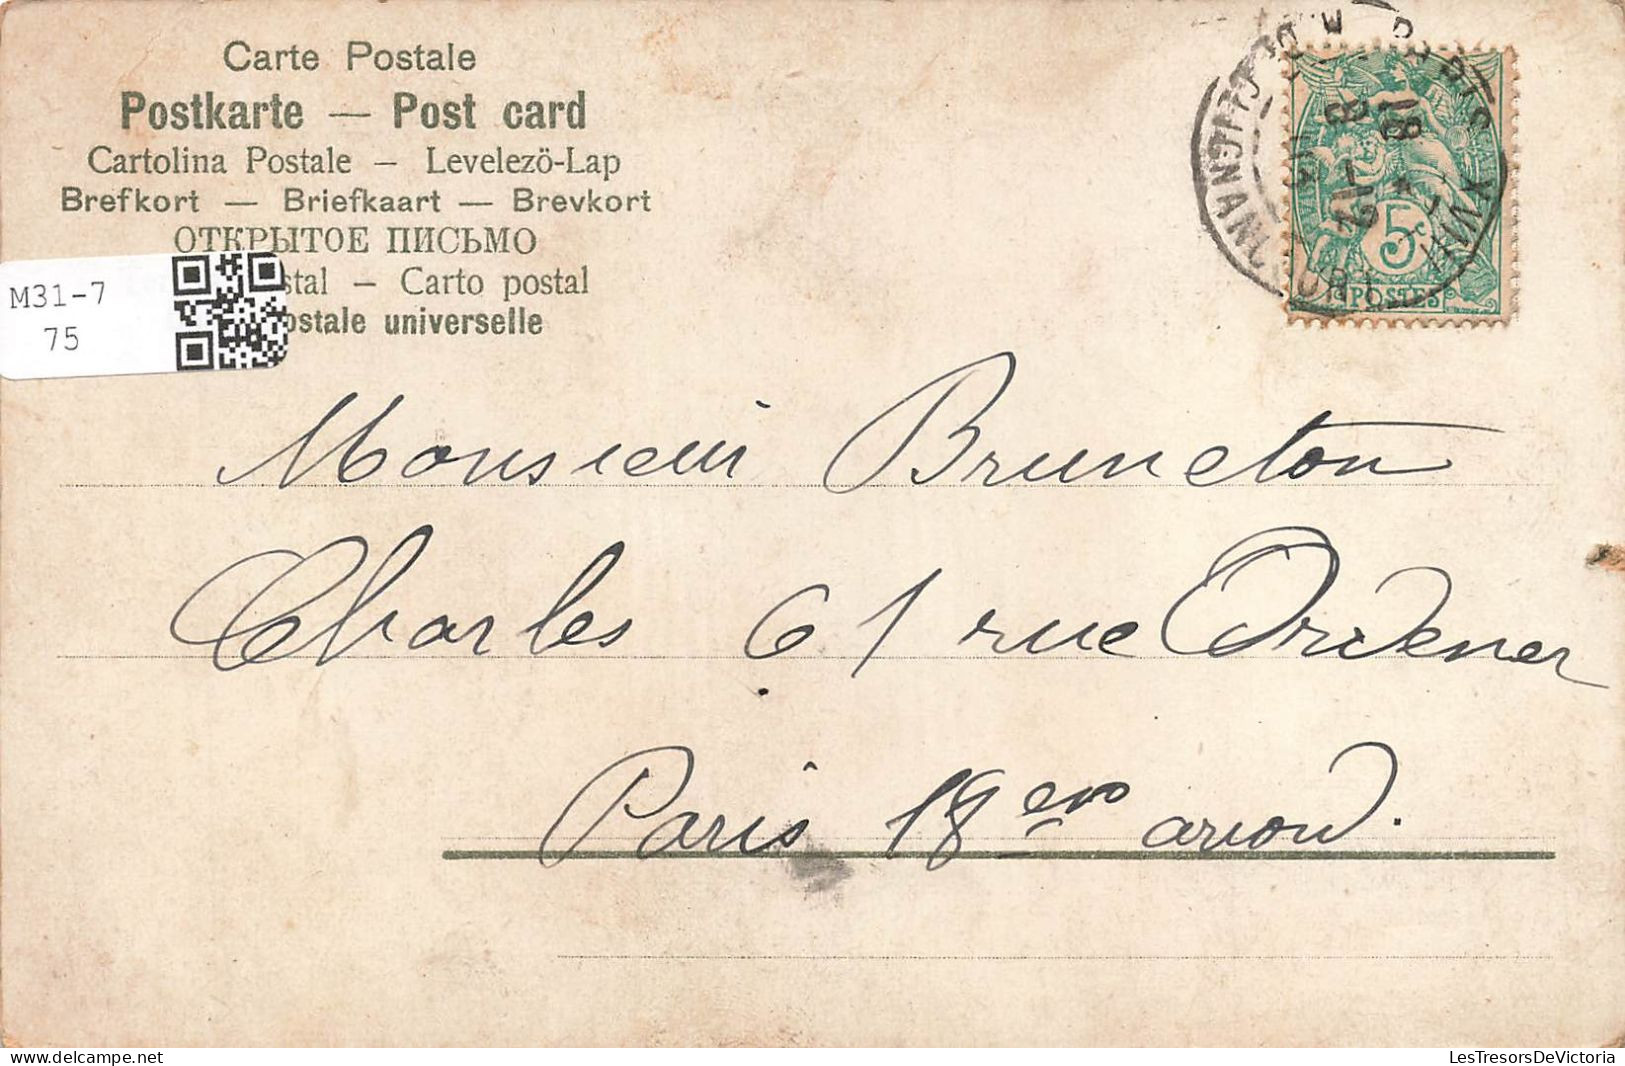 Carte Postale
Postkarte — Post card
Cartolina Postale — Levelezö-Lap
Brefkort — Briefkaart — Brevkort
ОТКРЫТОЕ ПИСЬМО
stal — Carto postal
ostale universelle
M31-7
75
PARIS XVIII
5c
POSTES
Monsieur Bruneton
Charles 61 rue Ordener
Paris 18em arrond.
delcampe.net
LesTresorsDeVictoria